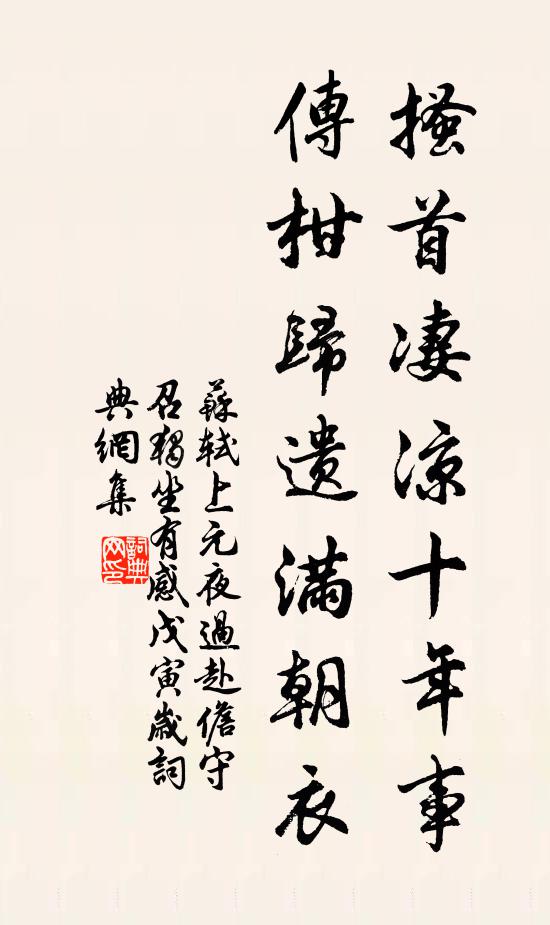 搔首凄涼十年事
傳柑歸遺滿朝衣
蘇軾上元夜過赴儋守
召獨坐有感戊寅歲詞
典網集
詞典网印